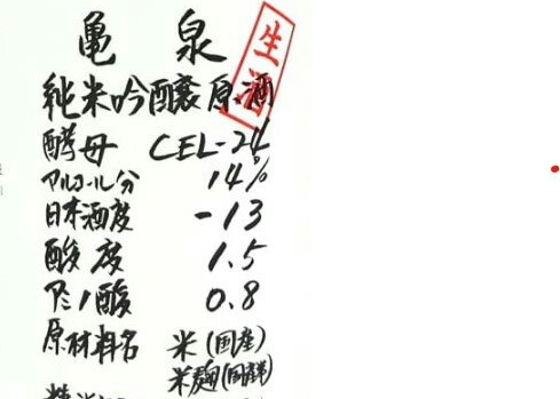 亀泉
生酒
純米吟醸原酒
酵母 CEL-24
アルコール分 14%
日本酒度 -13
酸度 1.5
アミノ酸 0.8
原材料名 米(国産)
米麹(国産米)